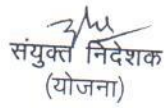 संयुक्त निदेशक
(योजना)